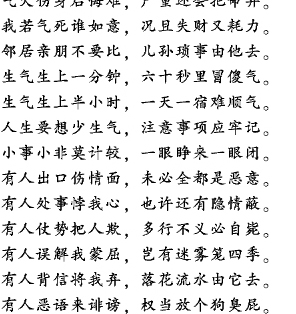 气大伤身后悔难，严重还会把命弃。
我若气死谁如意，况且失财又耗力。
邻居亲朋不要比，儿孙琐事由他去。
生气生上一分钟，六十秒里冒傻气。
生气生上半小时，一天一宿难顺气。
人生要想少生气，注意事项应牢记。
小事小非莫计较，一眼睁来一眼闭。
有人出口伤情面，未必全都是恶意。
有人处事悖我心，也许还有隐情蔽。
有人仗势把人欺，多行不义必自毙。
有人误解我蒙屈，岂有迷雾笼四季。
有人背信将我弃，落花流水由它去。
有人恶语来诽谤，权当放个狗臭屁。